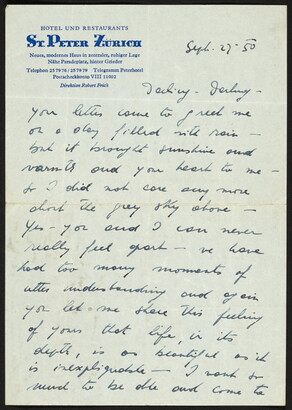 HOTEL UND RESTAURANTS
ST. PETER ZÜRICH
Neues, modernes Haus in zentraler, ruhiger Lage
Nähe Paradeplatz, hinter Grieder
Telephon 25 79 76 / 25 79 79 Telegramm Peterhotel
Postscheckkonto VIII 11002
Direktion Robert Prich
Sept. 27 - 50
Darling - Darling -
your letter came to greet me
on a day filled with rain -
but it brought sunshine and
warmth and you back to me -
so I did not care any more
about the grey sky above -
Yes - you and I can never
really feel apart - we have
had too many moments of
utter understanding and again
you let me share this feeling
of yours that life, in its
depth, is as beautiful as it
is inexplicable - I want so
much to be able and come to